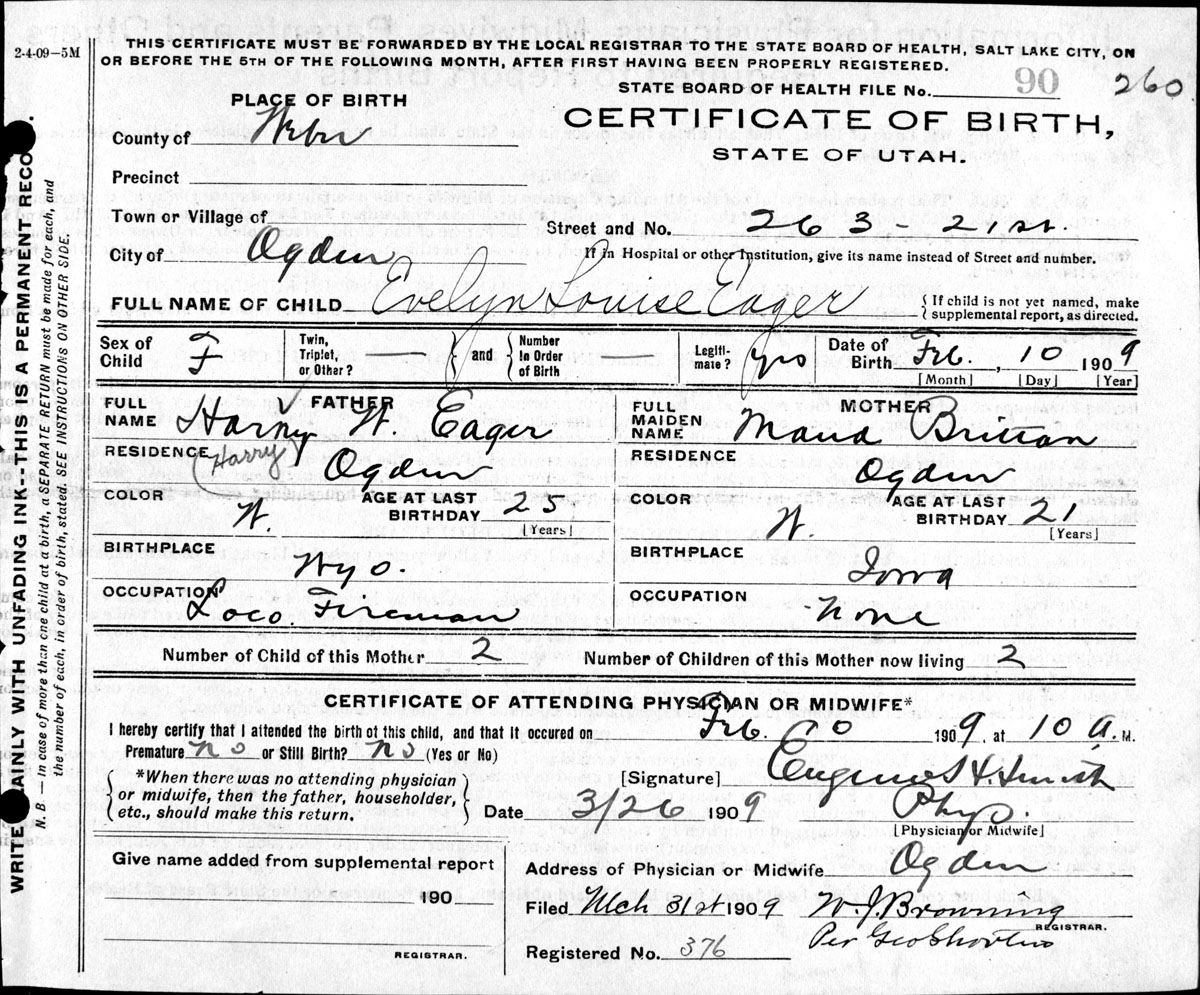 2-4-09—5M
THIS CERTIFICATE MUST BE FORWARDED BY THE LOCAL REGISTRAR TO THE STATE BOARD OF HEALTH, SALT LAKE CITY, ON
OR BEFORE THE 5TH OF THE FOLLOWING MONTH, AFTER FIRST HAVING BEEN PROPERLY REGISTERED.
STATE BOARD OF HEALTH FILE No. 90 260
PLACE OF BIRTH
CERTIFICATE OF BIRTH,
STATE OF UTAH.
County of Weber
Precinct
Town or Village of
Street and No. 263 - 21st.
City of Ogden
If in Hospital or other Institution, give its name instead of Street and number.
FULL NAME OF CHILD Evelyn Louise Eager
{If child is not yet named, make
supplemental report, as directed.
Sex of Child F
Twin, Triplet, or Other? and Number in Order of Birth
Legiti-mate? yes
Date of Birth Feb. 10 1909
[Month] [Day] [Year]
FATHER
FULL NAME Harny W. Eager
(Harry
RESIDENCE Ogden
COLOR W.
AGE AT LAST BIRTHDAY 25
[Years]
BIRTHPLACE Wyo.
OCCUPATION Loco. Fireman
MOTHER
FULL MAIDEN NAME Maud Brittan
RESIDENCE Ogden
COLOR W.
AGE AT LAST BIRTHDAY 21
[Years]
BIRTHPLACE Iowa
OCCUPATION None
Number of Child of this Mother 2
Number of Children of this Mother now living 2
CERTIFICATE OF ATTENDING PHYSICIAN OR MIDWIFE*
I hereby certify that I attended the birth of this child, and that it occured on Feb. 10 1909, at 10 A. M.
Premature No or Still Birth? No (Yes or No)
*When there was no attending physician
or midwife, then the father, householder,
etc., should make this return.
[Signature] Eugene H. Smith
Date 3/26 1909 Phys.
[Physician or Midwife]
Give name added from supplemental report
190
REGISTRAR.
Address of Physician or Midwife Ogden
Filed Mch 31st 1909 W. J. Browning
REGISTRAR.
Per Geo Shorten
Registered No. 376
WRITE AINLY WITH UNFADING INK--THIS IS A PERMANENT RECO .
N. B. — In case of more than one child at a birth, a SEPARATE RETURN must be made for each, and
the number of each, in order of birth, stated. SEE INSTRUCTIONS ON OTHER SIDE.